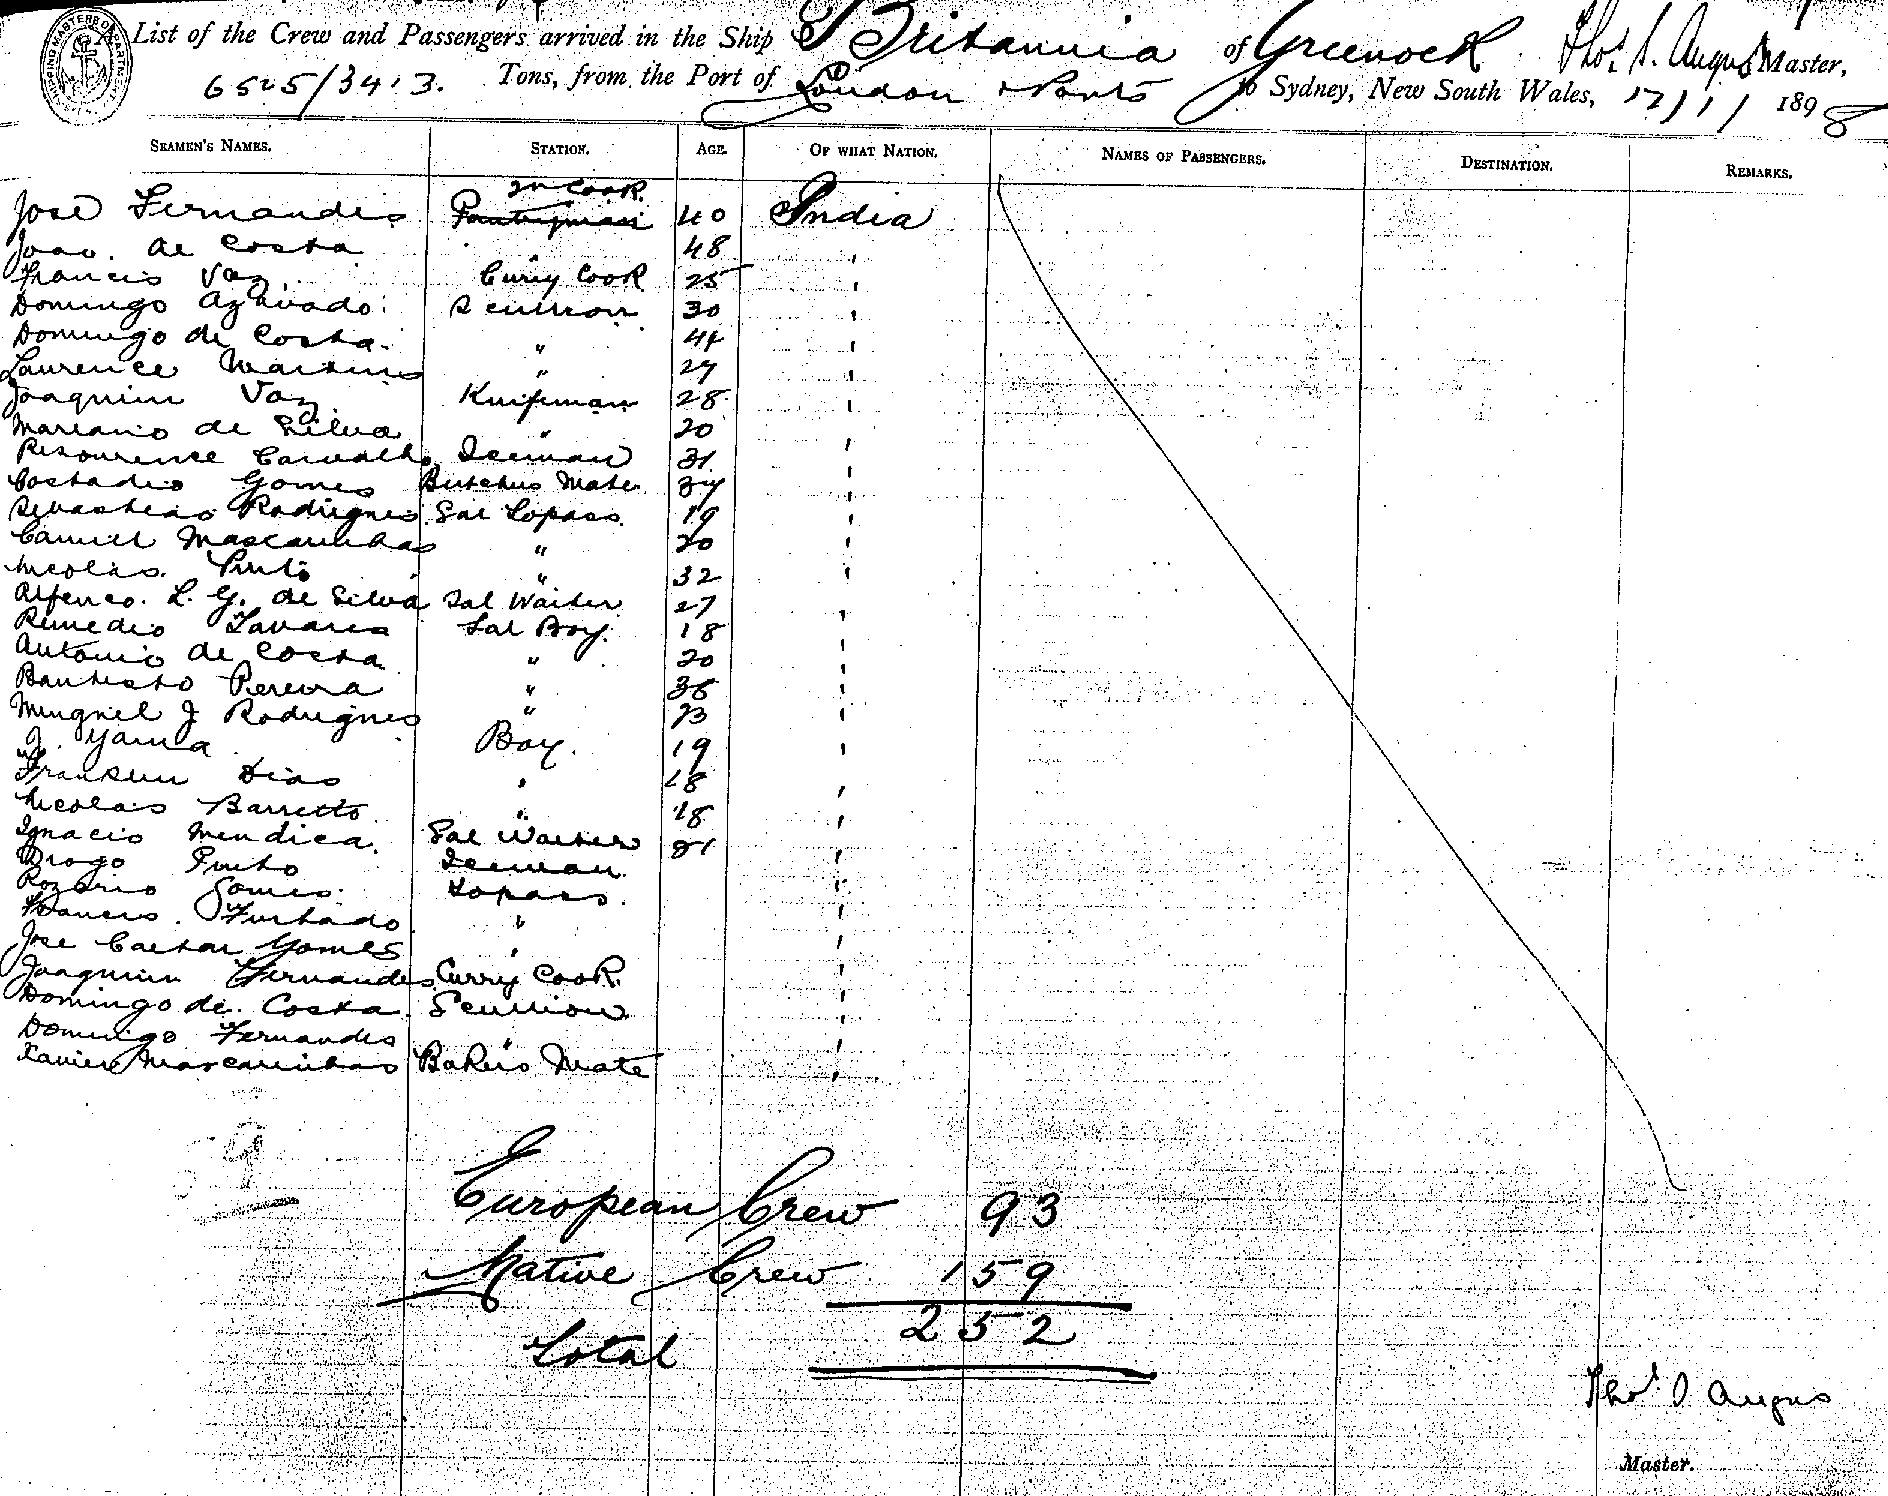 List of the Crew and Passengers arrived in the Ship Britannia of Greenock Thos. S. Angus Master,
6525/3413. Tons, from the Port of London & Ports to Sydney, New South Wales, 17/1/ 1898
SEAMEN'S NAMES. STATION. AGE. OF WHAT NATION. NAMES OF PASSENGERS. DESTINATION. REMARKS.
Cook.
José Fernandes Pantryman 40 India
Joao. de Costa " 48 '
Francis Vaz Curry Cook 25 '
Domingo Scullion 30 '
Domingo de Costa. " '
Laurence Martins " 27 '
Joaquim Vaz Knifeman 28 '
Mariano de Silva " 20 '
Carvalho Iceman 31 '
Gomes Butchers Mate '
Rodrigues Sal Topass. 19 '
Mascarinhas " 20 '
Nicolas. Pinto " 32 '
L. G. de Silva Sal Waiter 27 '
Remedio Tavares Sal Boy. 18 '
Antonio de Costa " 20 '
Pereira " '
J Rodrigues " '
J. Boy. 19 '
Franklin Dias ' 18 '
Nicolas Barretto " 18 '
Ignacio Mendica. Sal Waiter '
Pinto Iceman. '
Rozario Gomes. Topass. '
Francis. Furtado " '
Jose Caetan Gomes ' '
Joaquim Fernandes Curry Cook. '
Domingo de. Costa. Scullion '
Domingo Fernandes " '
Xavier Mascarinhas Bakers Mate '
European Crew 93
Native Crew 159
Total 252
Thos. S Angus
Master.